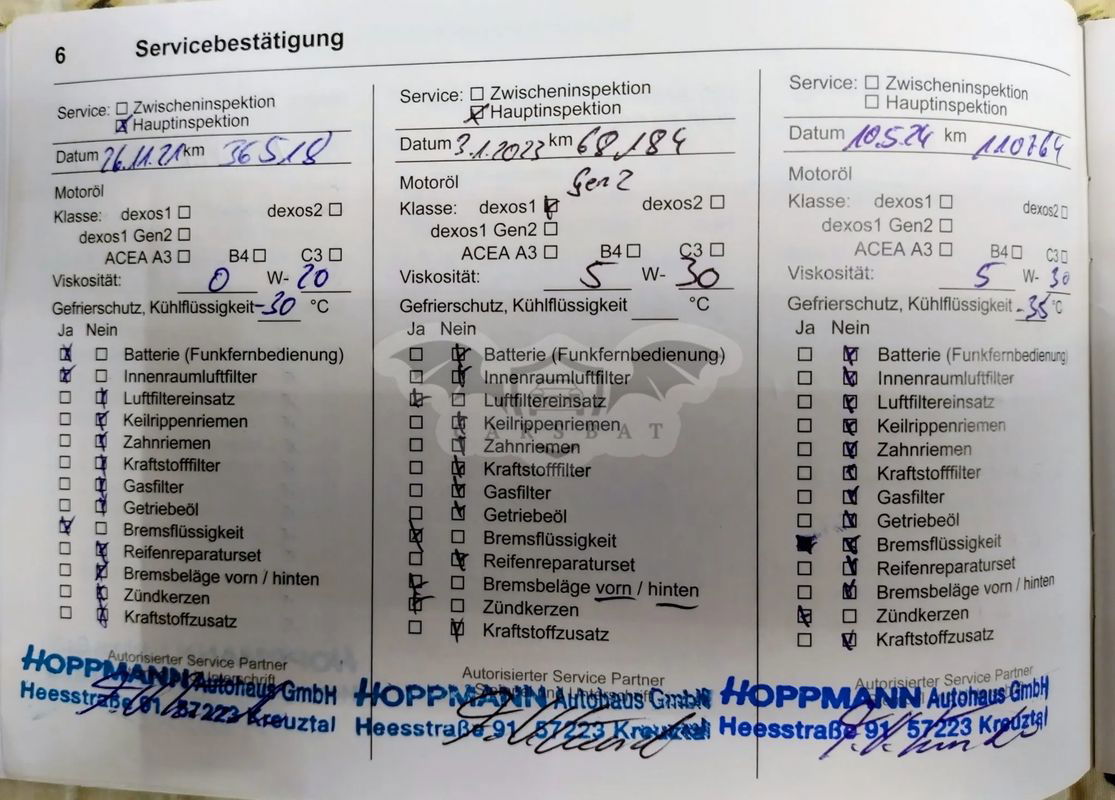 6 Servicebestätigung
Service: ☐ Zwischeninspektion
☒ Hauptinspektion
Datum 26.11.21 km 36518
Motoröl
Klasse: dexos1 ☐ dexos2 ☐
dexos1 Gen2 ☐
ACEA A3 ☐ B4 ☐ C3 ☐
Viskosität: 0 W- 20
Gefrierschutz, Kühlflüssigkeit -30 °C
Ja Nein
☒ ☐ Batterie (Funkfernbedienung)
☒ ☐ Innenraumluftfilter
☐ ☒ Luftfiltereinsatz
☐ ☒ Keilrippenriemen
☐ ☒ Zahnriemen
☐ ☒ Kraftstofffilter
☐ ☒ Gasfilter
☐ ☒ Getriebeöl
☒ ☐ Bremsflüssigkeit
☐ ☒ Reifenreparaturset
☐ ☒ Bremsbeläge vorn / hinten
☐ ☒ Zündkerzen
☐ ☒ Kraftstoffzusatz
Autorisierter Service Partner
HOPPMANN Autohaus GmbH
Heesstraße 91 57223 Kreuztal
Service: ☐ Zwischeninspektion
☒ Hauptinspektion
Datum 3.1.2023 km 68184
Motoröl Gen 2
Klasse: dexos1 ☒ dexos2 ☐
dexos1 Gen2 ☐
ACEA A3 ☐ B4 ☐ C3 ☐
Viskosität: 5 W- 30
Gefrierschutz, Kühlflüssigkeit °C
Ja Nein
☐ ☒ Batterie (Funkfernbedienung)
☐ ☒ Innenraumluftfilter
☒ ☐ Luftfiltereinsatz
☐ ☒ Keilrippenriemen
☐ ☒ Zahnriemen
☐ ☒ Kraftstofffilter
☐ ☒ Gasfilter
☐ ☒ Getriebeöl
☒ ☐ Bremsflüssigkeit
☐ ☒ Reifenreparaturset
☒ ☐ Bremsbeläge vorn / hinten
☒ ☐ Zündkerzen
☐ ☒ Kraftstoffzusatz
Autorisierter Service Partner
HOPPMANN Autohaus GmbH
Heesstraße 91 57223 Kreuztal
Service: ☐ Zwischeninspektion
☐ Hauptinspektion
Datum 10.5.24 km 110764
Motoröl
Klasse: dexos1 ☐ dexos2 ☐
dexos1 Gen2 ☐
ACEA A3 ☐ B4 ☐ C3 ☐
Viskosität: 5 W- 30
Gefrierschutz, Kühlflüssigkeit -35 °C
Ja Nein
☐ ☒ Batterie (Funkfernbedienung)
☐ ☒ Innenraumluftfilter
☐ ☒ Luftfiltereinsatz
☐ ☒ Keilrippenriemen
☐ ☒ Zahnriemen
☐ ☒ Kraftstofffilter
☐ ☒ Gasfilter
☐ ☒ Getriebeöl
■ ☒ Bremsflüssigkeit
☐ ☒ Reifenreparaturset
☐ ☒ Bremsbeläge vorn / hinten
☒ ☐ Zündkerzen
☐ ☒ Kraftstoffzusatz
Autorisierter Service Partner
HOPPMANN Autohaus GmbH
Heesstraße 91 57223 Kreuztal